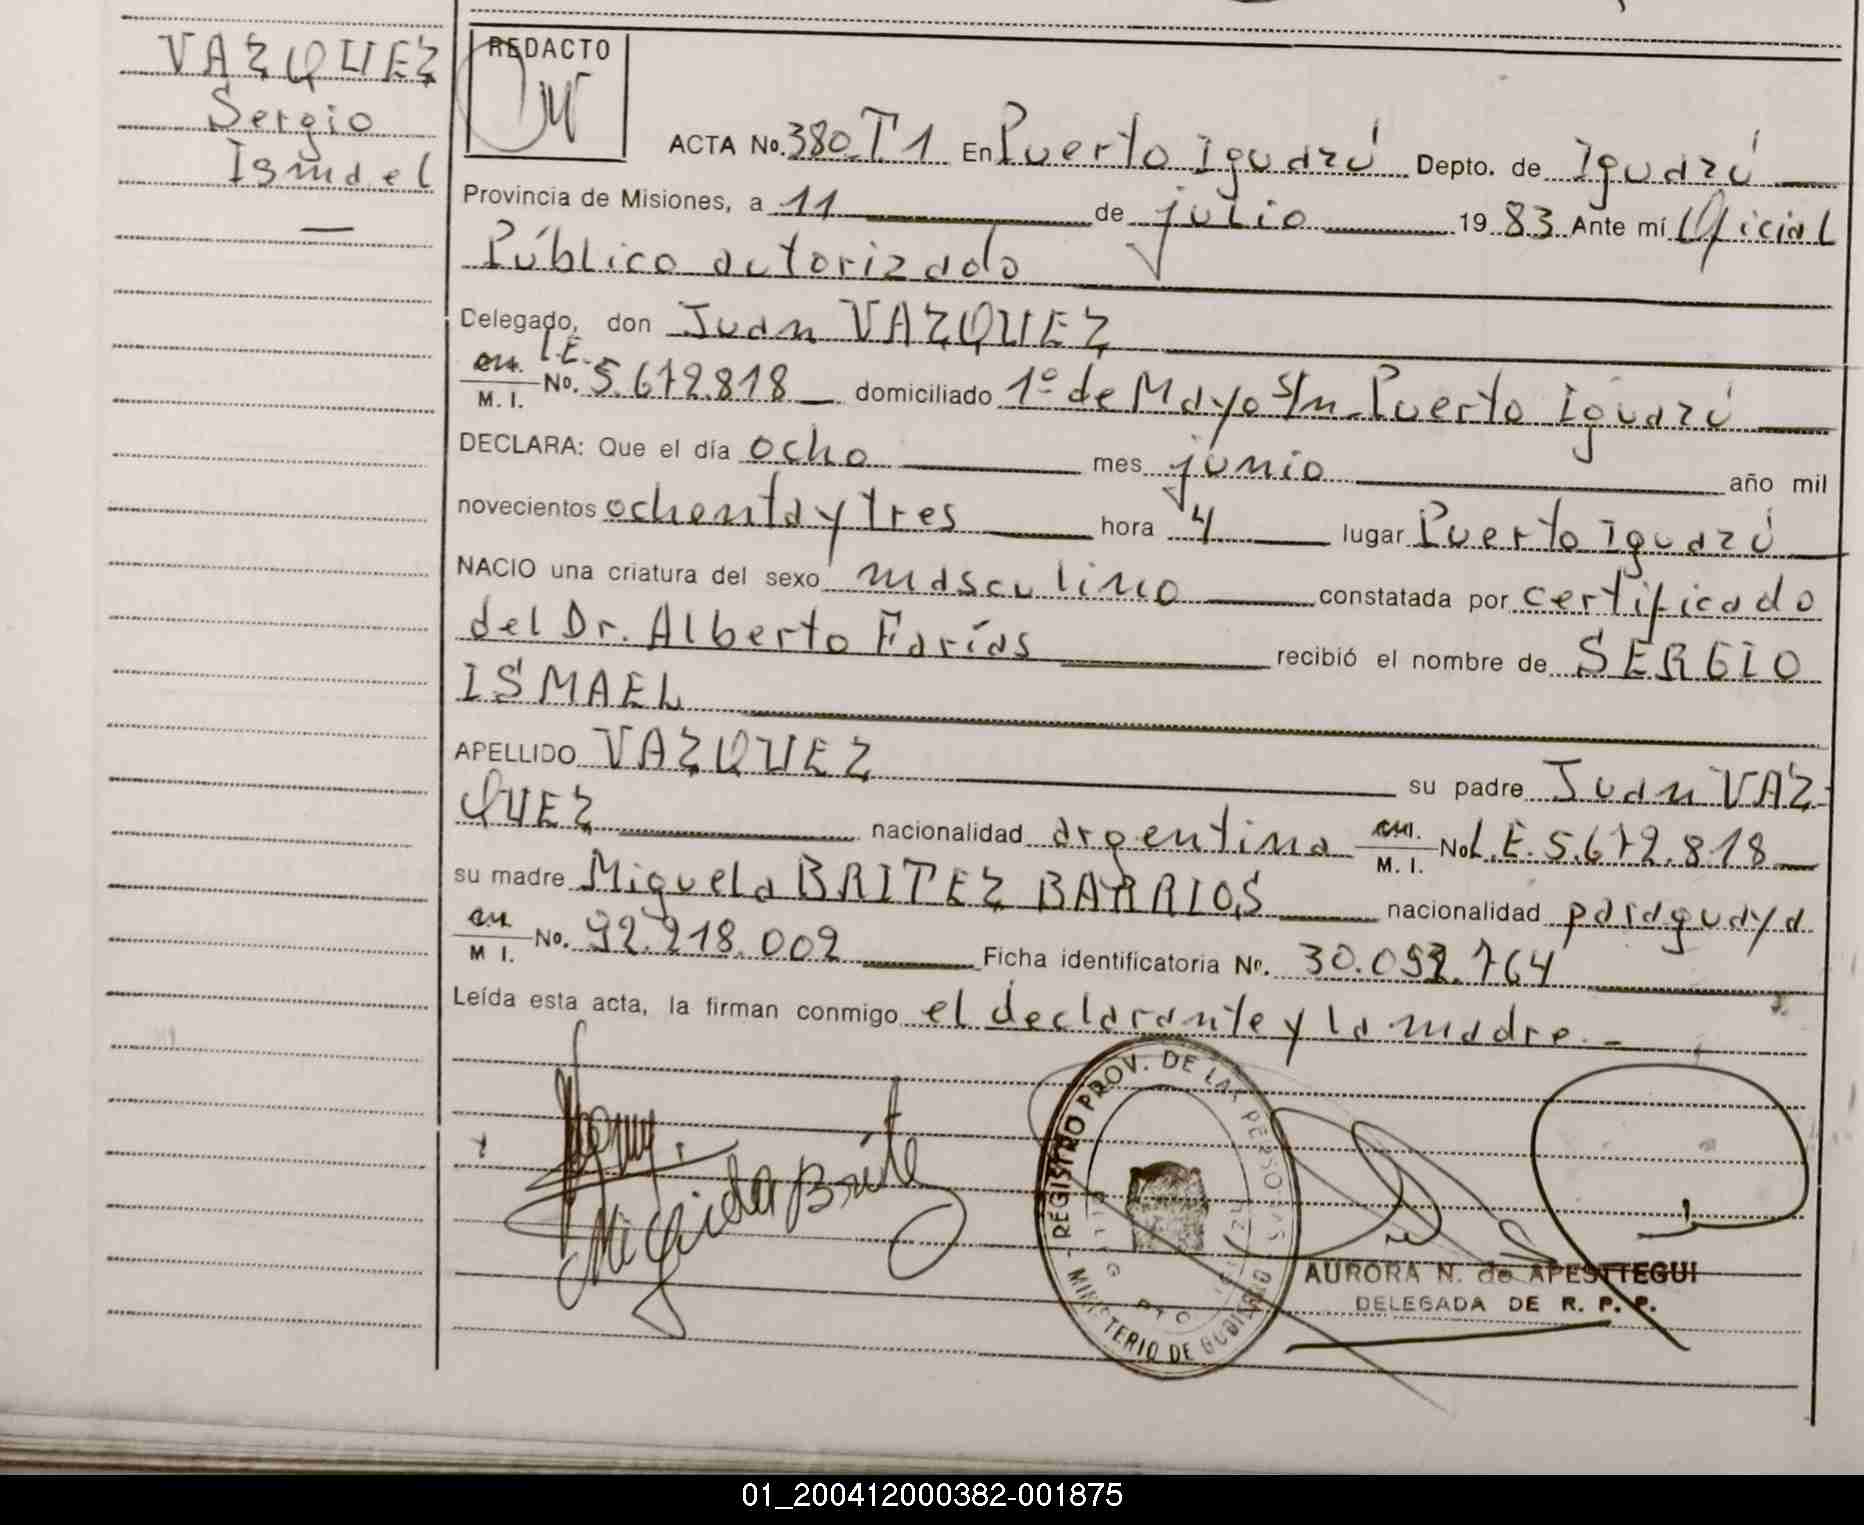 VAZQUEZ
Sergio
Ismael
—
REDACTO
ACTA No. 380 T1 En Puerto Iguazú Depto. de Iguazú
Provincia de Misiones, a 11 de julio 19 83 Ante mí Oficial
Público autorizado
Delegado, don Juan VAZQUEZ
L.E.
M. I. No. 5.672.818 domiciliado 1º de Mayo s/n Puerto Iguazú
DECLARA: Que el día ocho mes junio año mil
novecientos ochenta y tres hora 4 lugar Puerto Iguazú
NACIO una criatura del sexo masculino constatada por certificado
del Dr. Alberto Farías recibió el nombre de SERGIO
ISMAEL
APELLIDO VAZQUEZ su padre Juan VAZ-
QUEZ nacionalidad argentina M. I. No L.E. 5.672.818
su madre Miguela BRITEZ BARRIOS nacionalidad paraguaya
M I. No. 92.218.002 Ficha identificatoria No. 30.092.764
Leída esta acta, la firman conmigo el declarante y la madre.-
REGISTRO PROV. DE LAS PERSONAS
MINISTERIO DE GOBIERNO
AURORA N. de APESTTEGUI
DELEGADA DE R. P. P.
01_200412000382-001875